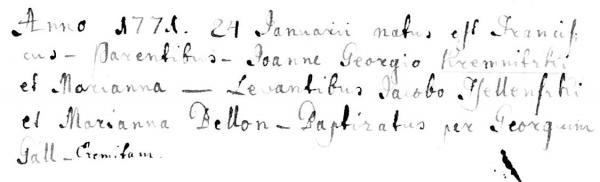 Anno 1771. 24 Januarii natus est Francis-
cus - Parentibus - Joanne Georgio Kremnitzkij
et Marianna — Levantibus Jacobo
et Marianna Bellon - Baptizatus per Georgium
Gall - Eremitam.